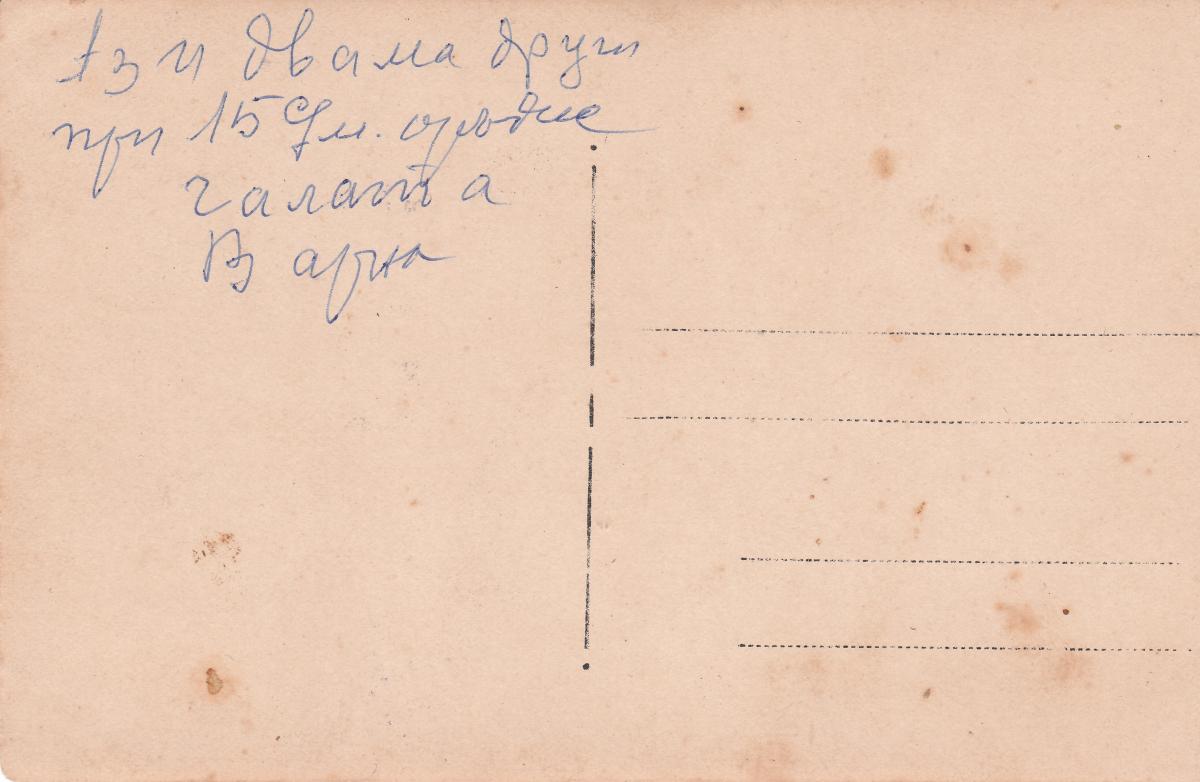 Аз и двама други
при 15 см. оръдие
Галата
Варна